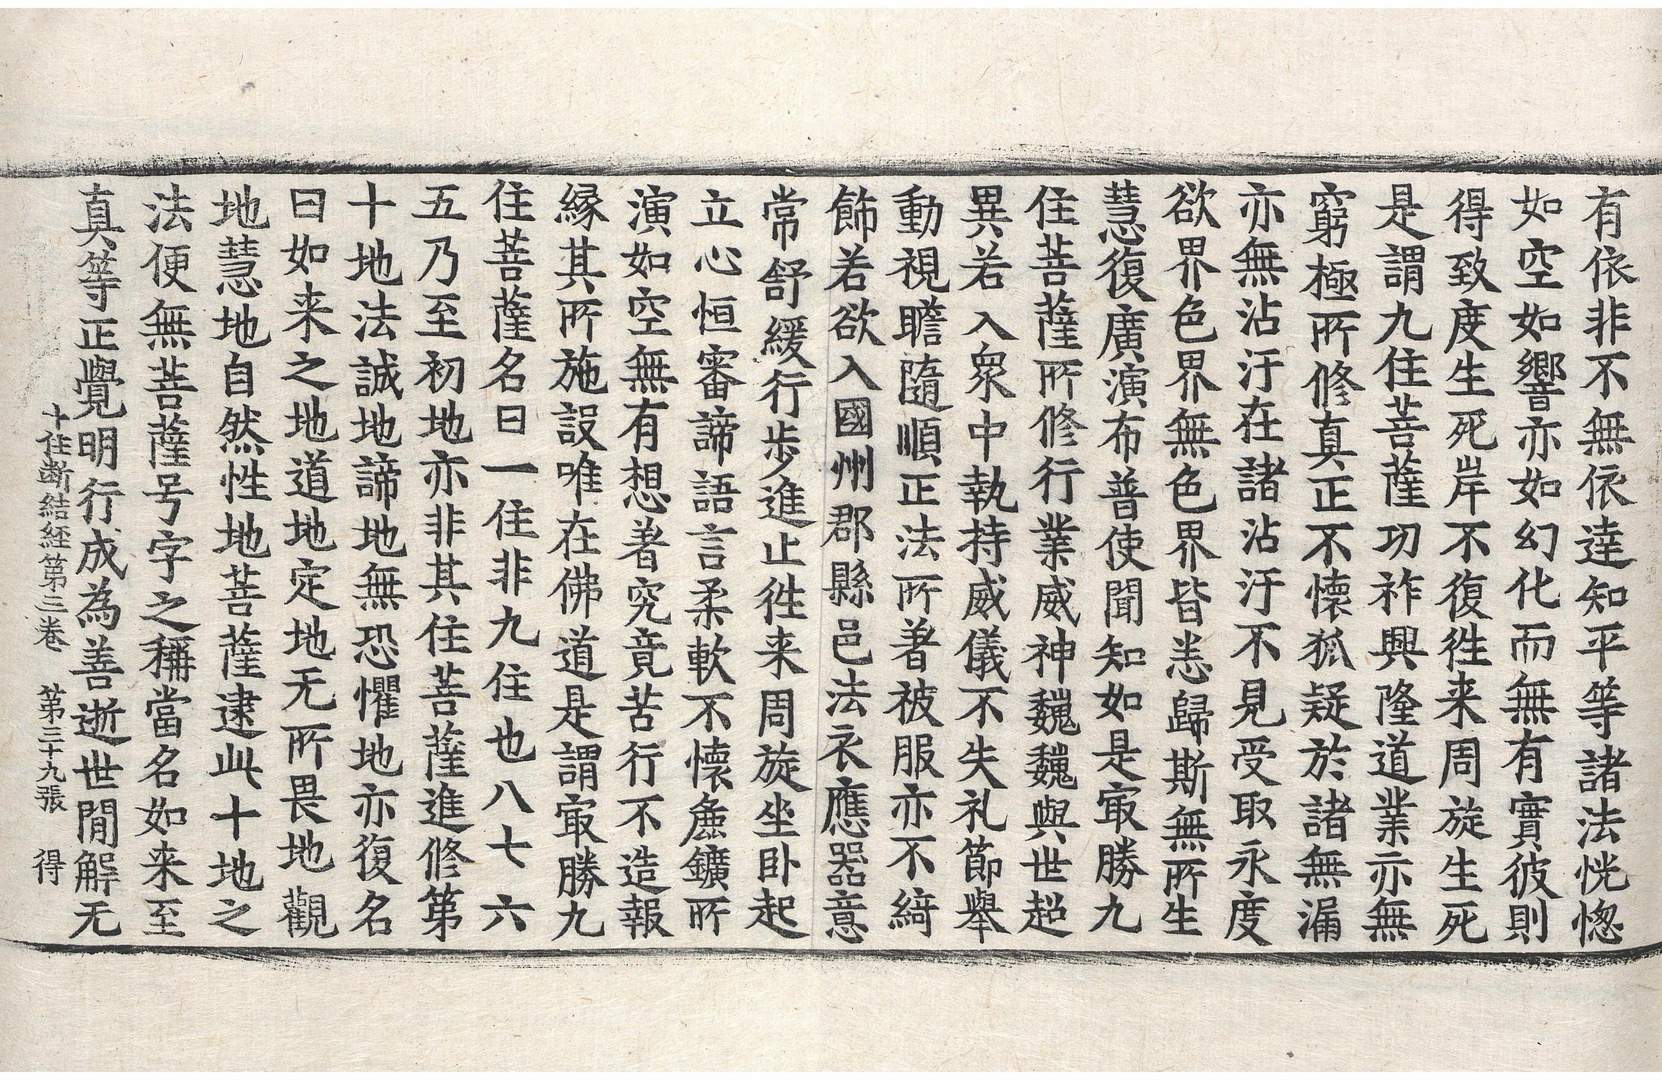 有依非不無依達知平等諸法恍惚
如空如響亦如幻化而無有實彼則
得致度生死岸不復徃来周旋生死
是謂九住菩薩功祚興隆道業亦無
窮極所修真正不懷狐疑於諸無漏
亦無沾汙在諸沾汙不見受取永度
欲界色界無色界皆悉歸斯無所生
慧復廣演布普使聞知如是㝡勝九
住菩薩所修行業威神魏魏與世超
異若入衆中執持威儀不失礼節舉
動視瞻隨順正法所著被服亦不綺
飾若欲入國州郡縣邑法衣應器意
常舒緩行步進止徃来周旋坐卧起
立心恒審諦語言柔軟不懷麁鑛所
演如空無有想著究竟苦行不造報
縁其所施設唯在佛道是謂㝡勝九
住菩薩名曰一住非九住也八七六
五乃至初地亦非其住菩薩進修第
十地法誠地諦地無恐懼地亦復名
曰如来之地道地定地无所畏地觀
地慧地自然性地菩薩逮此十地之
法便無菩薩号字之稱當名如来至
真等正覺明行成為善逝世閒解无
十住斷結經第三卷　第三十九張　得